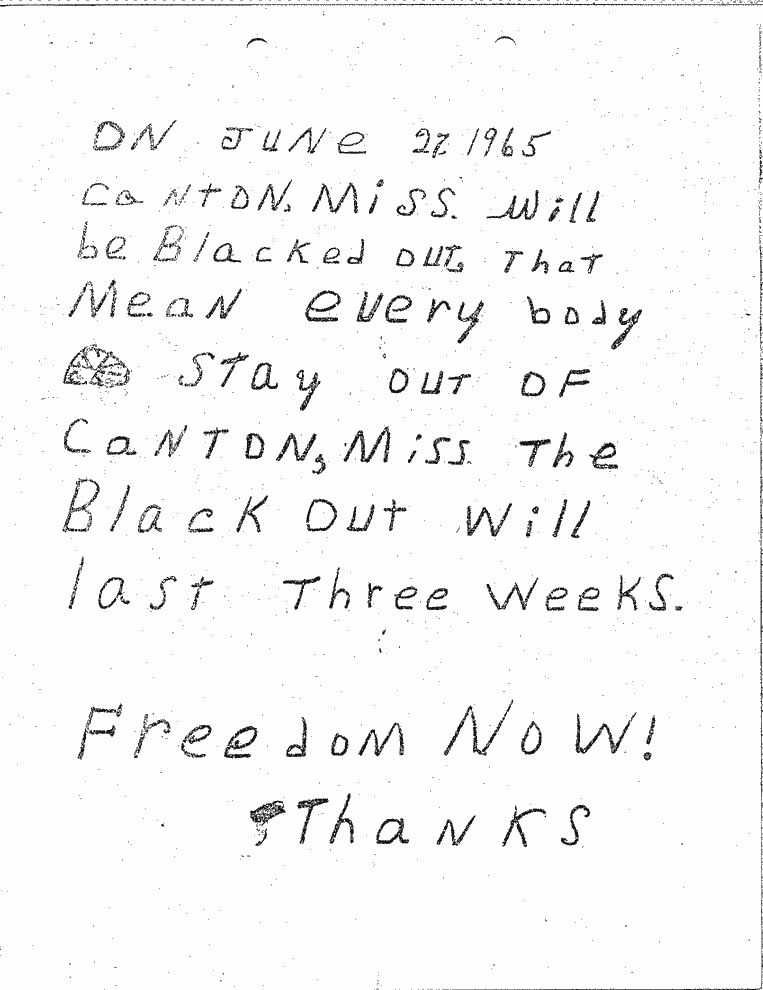 ON JUNE 27, 1965
CaNTON, MiSS. Will
be Blacked OUT, That
MeaN every body
Stay OUT OF
CaNTON, MiSS The
Black OUt Will
last Three WeekS.
Freedom NOW!
ThaNKS